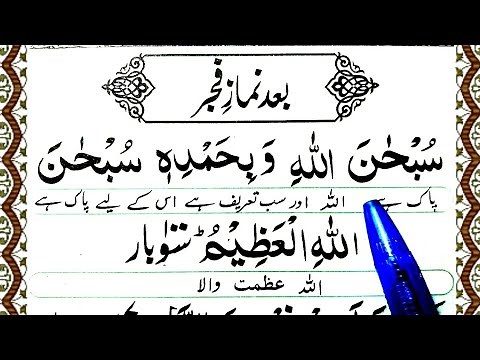 بعد نمازِ فجر
سُبْحٰنَ اللهِ وَبِحَمْدِهٖ سُبْحٰنَ
پاک ہے اللہ اور سب تعریف ہے اس کے لیے پاک ہے
اللهِ الْعَظِيْمُ ط سَو بار
اللہ عظمت والا